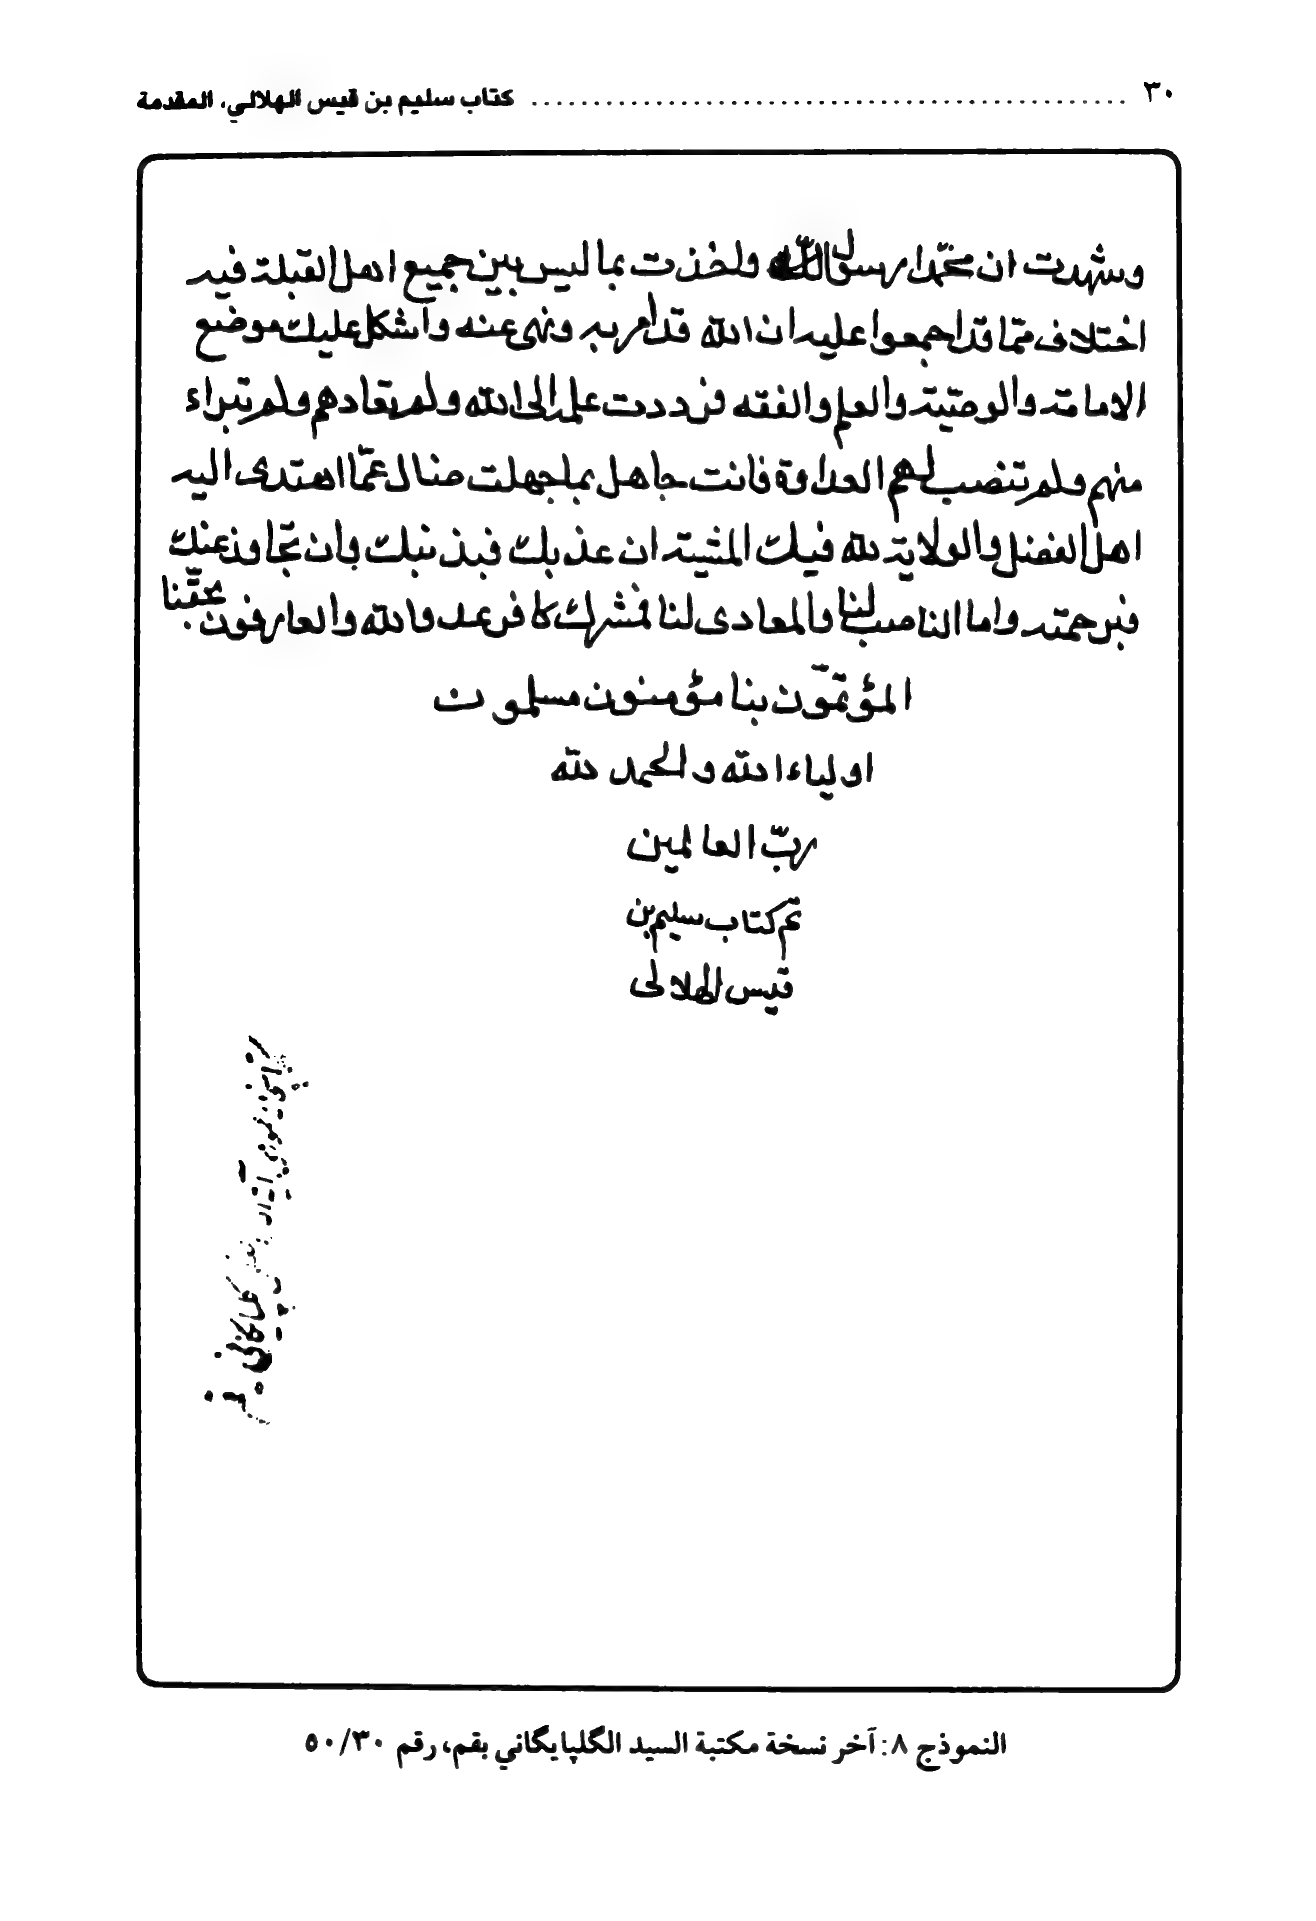 ٣٠ ........ كتاب سليم بن قيس الهلالي، المقدمة
وشهدت ان محمّدا رسول الله واخذت بما ليس بين جميع اهل القبلة فيه
اختلاف ممّا قد اجمعوا عليه ان الله قد امر به ونهى عنه واشكل عليك موضع
الامامة والوصيّة والعلم والفقه فرددت علمه الى الله ولم تعادهم ولم تبراء
منهم ولم تنصب لهم العداوة فانت جاهل بما جهلت ضال عمّا اهتدى اليه
اهل الفضل والولاية لله فيك المشية ان عذبك فبذنبك وان تجاوز عنك
فبرحمته واما الناصب لنا والمعادى لنا فمشرك كافر عدو الله والعارفون بحقّنا
المؤتمّون بنا مؤمنون مسلمون
اولياء الله والحمد لله
ربّ العالمين
تم كتاب سليم بن
قيس الهلالى
گلپايگانى - قم
النموذج ٨: آخر نسخة مكتبة السيد الگلپايگاني بقم، رقم ٥٠/٣٠